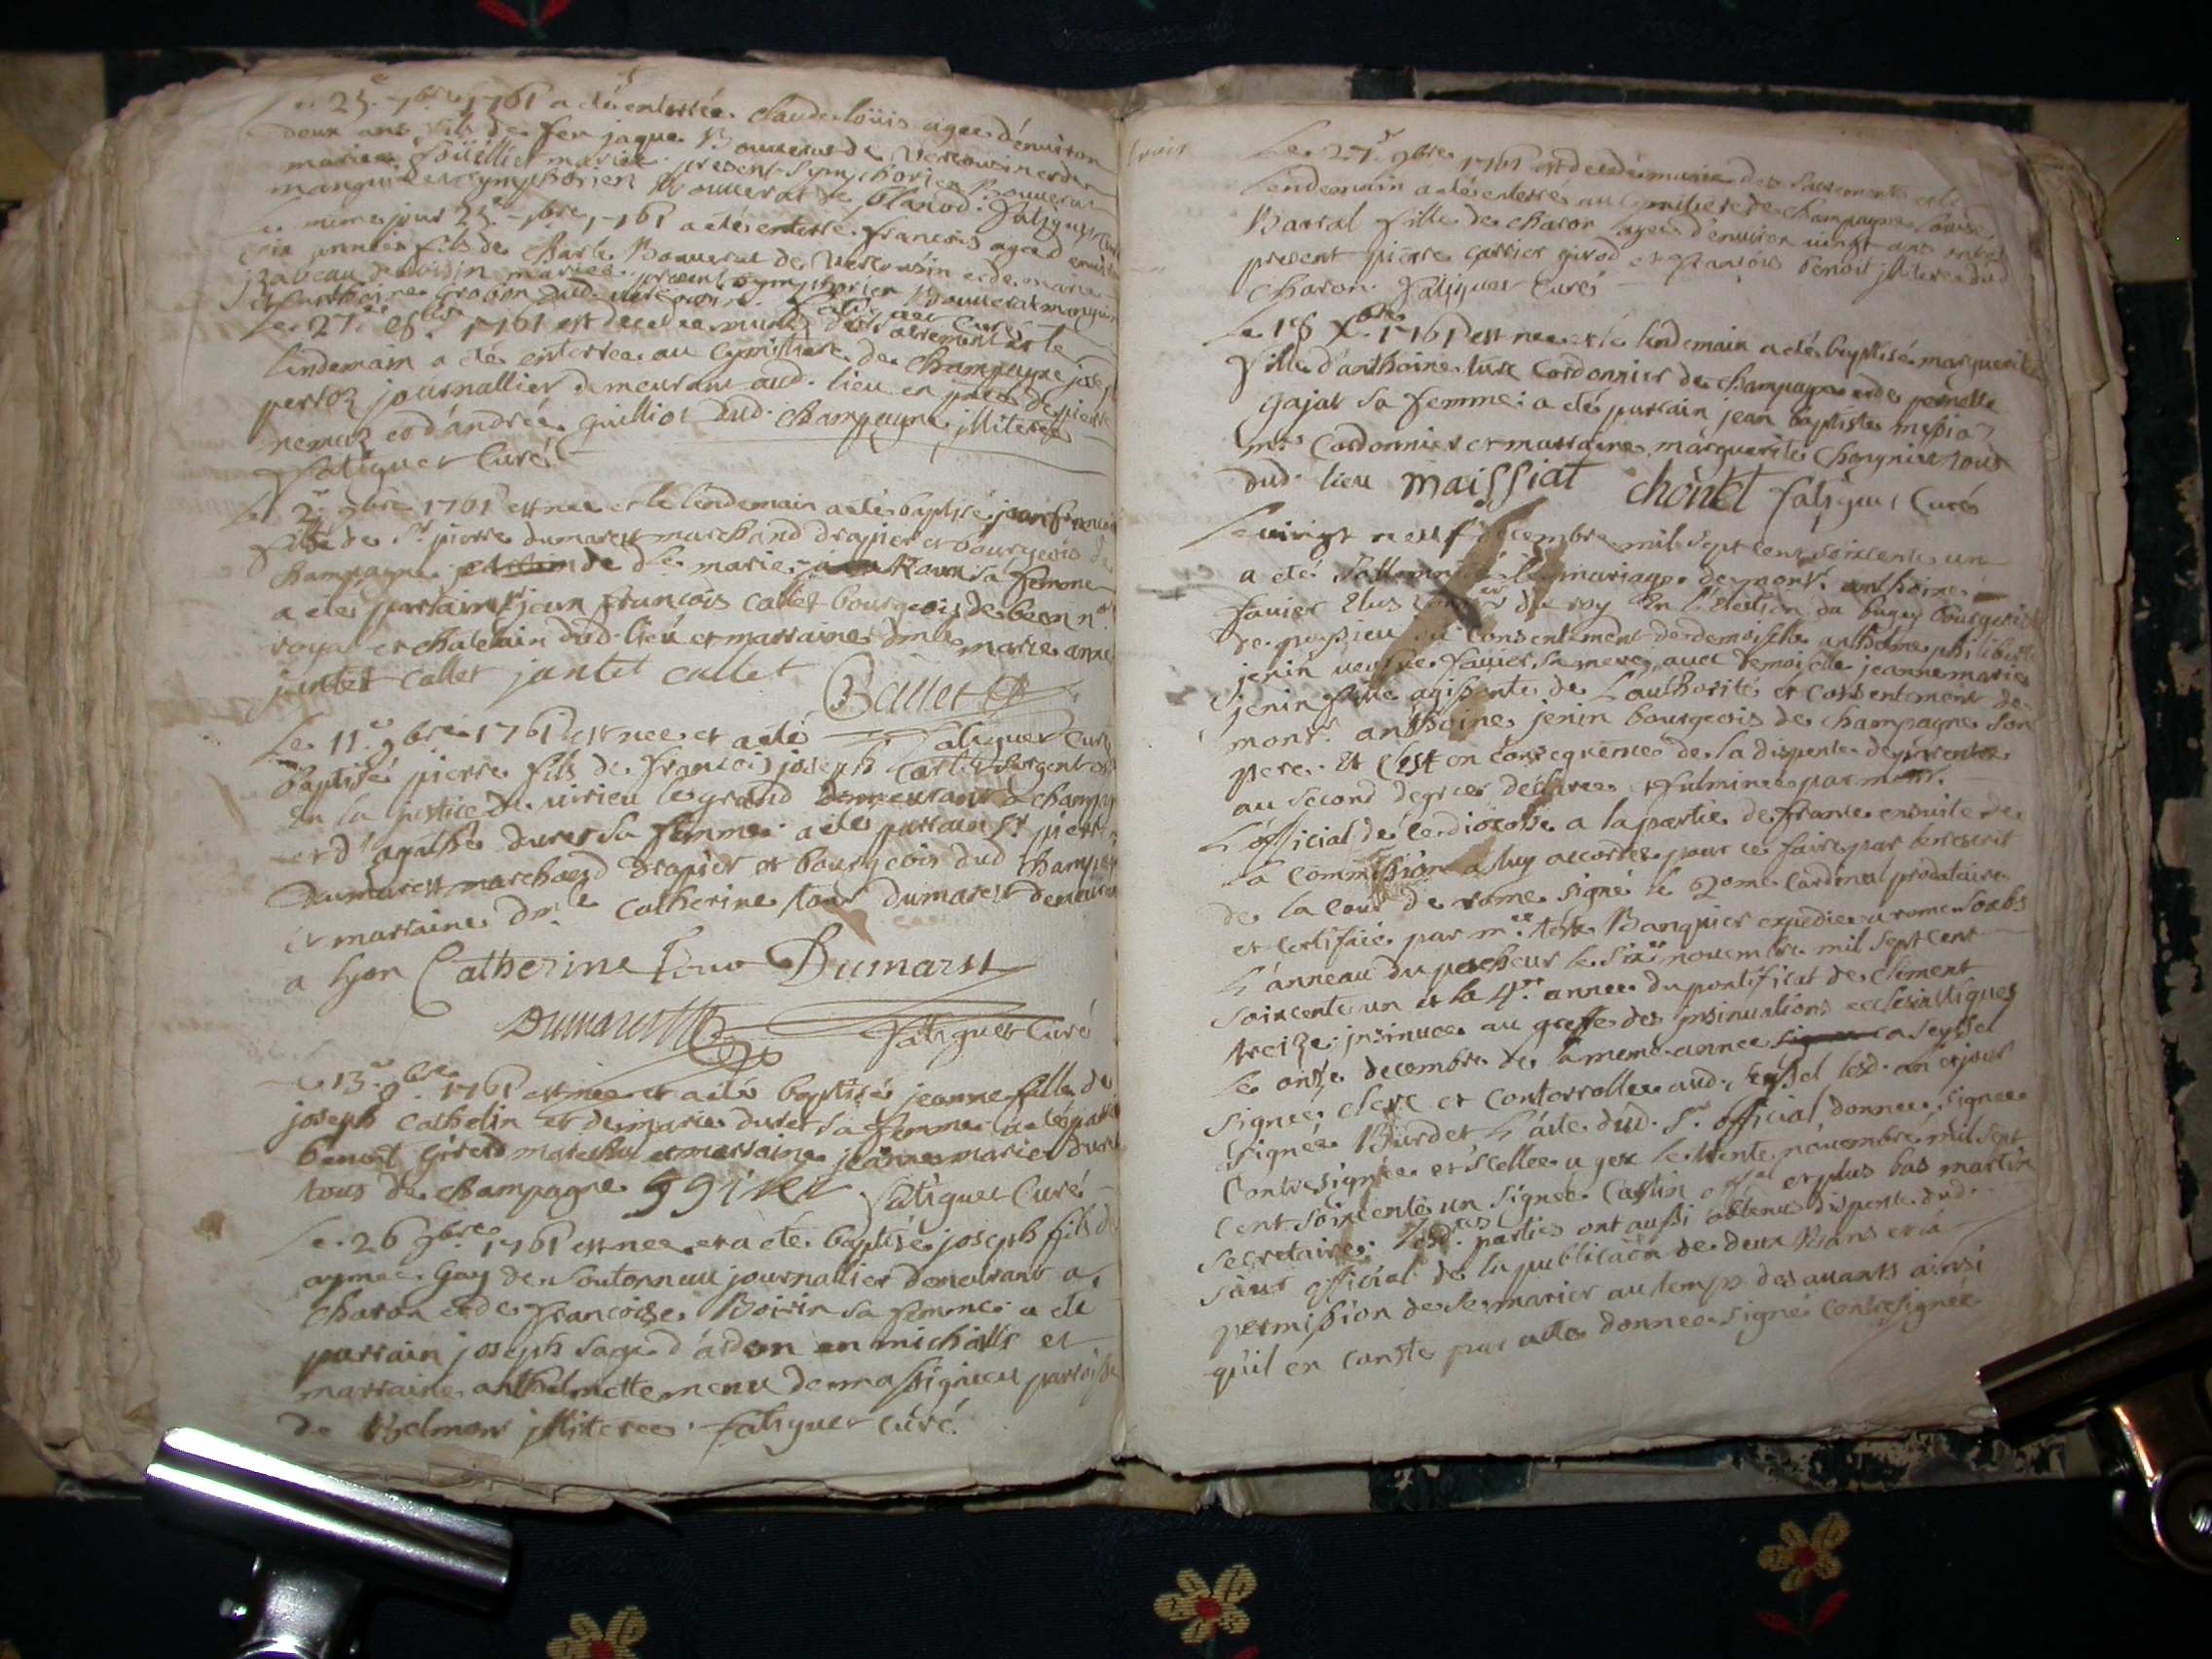 Le 25e 7bre 1761 a eté enterrée Claude loüis agee d'enuiron
deux ans fils de feu jaque Bouuerat de Vercousin et de
mariee present Symphorien Bouuerat
manguin et symphorien Bouuerat de blanod. fatiguet Curé
Le meme jour 25e 7bre 1761 a eté enterré francois aged enuiron
six annees fils de Charle Bouuerat de Vercousin et de marie
mariee present symphorien Bouuerat manguin
et Anthoine Grobon dud. fatiguet Curé
Le 27e 1761 est decedee munie des sacrements et le
lendemain a eté enterree au Cymistiere de Champagne
perroz journallier demeurant aud. lieu en pnce de pierre
nemoz et d'andreé guilliot dud. Champagne jlliteres
fatiguet Curé
Le 2e 9bre 1761 est nee et le lendemain a eté baptisé jean francois
fils de Sr pierre dumarest marchand drapier et bourgeois de
Champagne et de dle marie Ravu sa femme
a eté parrain Sr jean francois callet bourgeois de beon nre
royal et chatelain dud. lieu et marraine dmle marie anne
jantet callet jantet callet Callet
Le 11e 9bre 1761 est nee et a eté fatiguet Curé
baptisé pierre fils de francois joseph Carrier sergent
En la justice de uirieu le grand demeurant a Champagne
et d'agathe duret sa femme a eté parrain Sr pierre
Dumarest marchand drapier et bourgeois dud Champagne
et marraine dmle Catherine tour dumarest demeurant
a lyon Catherine tour Dumarest
Dumarest fatiguet Curé
Le 13e 9bre 1761 est nee et a eté baptisé jeanne fille de
joseph Cathelin et de marie duret sa femme a eté parrain
benoit Girerd marchal et marraine jeanne marie duret
tous de Champagne ggirer fatiguet Curé
Le 26 9bre 1761 est nee et a eté baptisé joseph fils de
aymé Guy de Soutonnau journallier demeurant a
Charon et de francoise Boisin sa femme a eté
parrain joseph sage d'ardon en michaille et
marraine anthelmette menu de massignieu parroisse
de Belmont jlliteres. fatiguet Curé.
Le 27e 9bre 1761 est decedé munie des sacrements et le
lendemain a eté enterré au Cymitiere de Champagne louise
Barral fille de Charon agee d'enuiron uingt ans
present pierre Carrier girod et francois benoit jlliteres dud
Charon. fatiguet Curé
Le 18 Xbre 1761 est nee et le lindemain a eté baptisé marguerite
fille d'anthoine Cordonnier de Champagne et de pernette
gajat sa femme: a eté parrain jean baptiste messiat
mre Cordonnier et marraine marguerite Chognier tous
dud. lieu maissiat choñet fatiguet Curé
Le uingt neuf decembre mil sept cent soixente un
a eté Sollemnisé le mariage de monsr anthoine
fauier Elus du roy En l'election du bugey bourgeois
de du Consentement de demoiselle anthelme philiberte
jenin ueufue fauier sa mere, auec demoiselle jeanne marie
jenin fille agissante de L'authorité et Consentement de
monsr anthoine jenin bourgeois de Champagne son
pere. Et C'est en consequence de la dispense de parenté
au second degree declaree et fulminee par monsr
L'official de ce diocesse a la partie de france ensuite de
la Commission a luy accordee pour ce faire par
de la Cour de rome signé le 2ome Cardinal prodataire
et Certifiée par mre teste Banquier expedie a rome soubs
L'anneau du pescheur le six nouembre mil sept cent
soixente un et la 4me annee du pontificat de Clement
treize: jnsinuee au greffe des jnsinuations ecclesiastiques
le onze decembre de la meme annee a seyssel
signee Clerc et Contorrollee aud. seyssel lesd. an et jour
signée Burdet L'acte dud. Sr official donnee signee
Contresignée et scellee a gex le trente nouembre mil sept
Cent soixente un signee Castin offal et plus bas martin
secretaire: lesd. parties ont aussi obtenus dispense dud.
sieur official de la publicaon de deux Bans et la
permission de se marier au temps des auants ainsi
quil en conste par acte donnee signé Contresignée